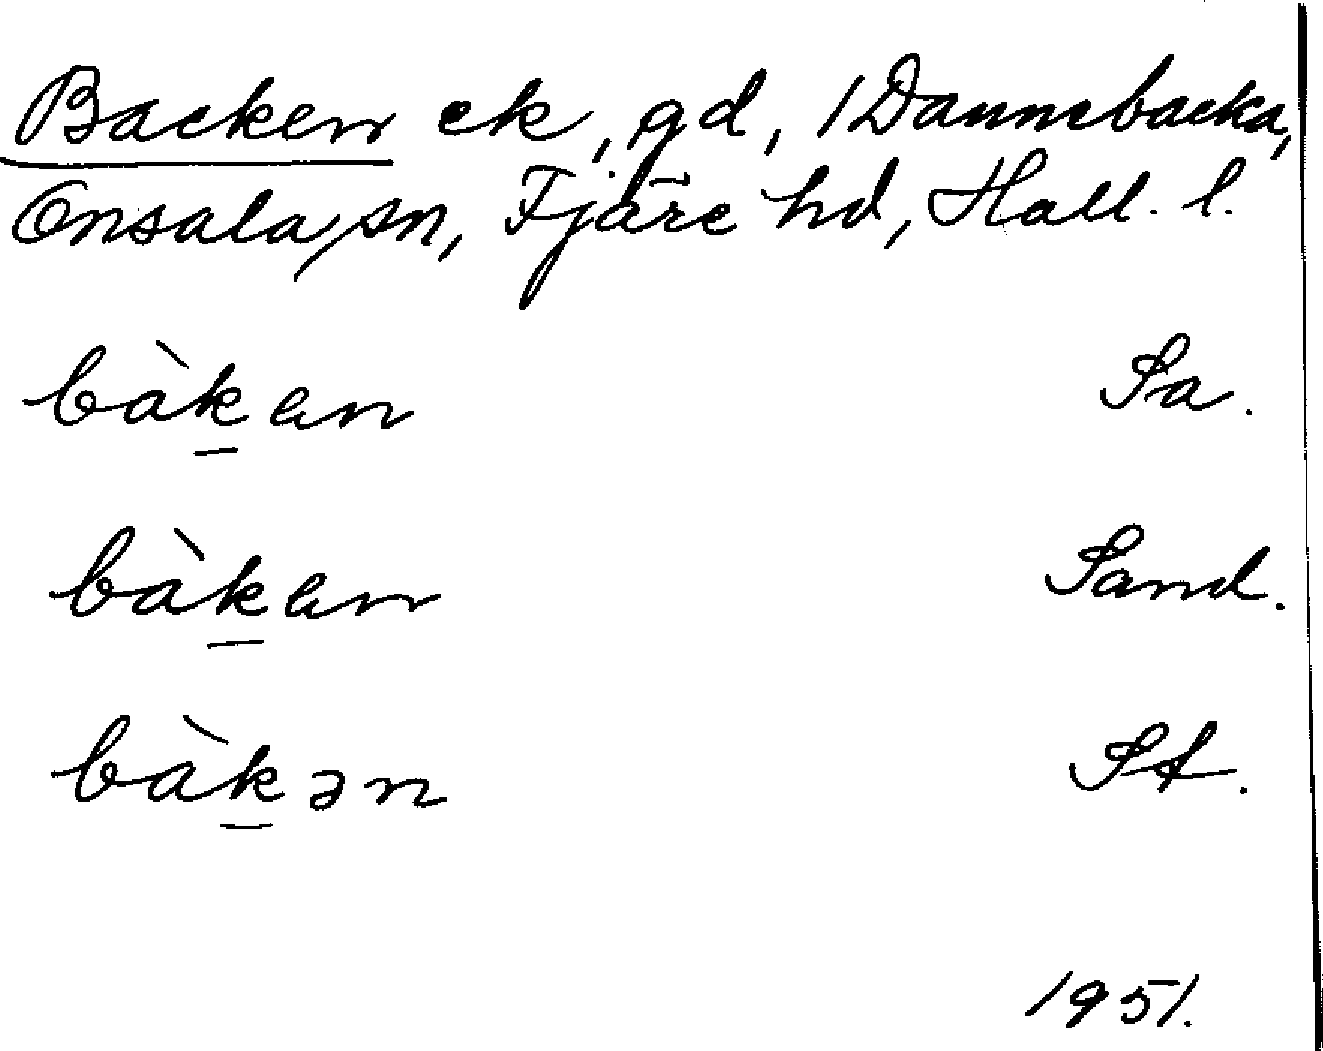 Backen ek, gd, 1 Dannebacka,
Onsala sn, Fjäre hd, Hall. l.
bàk̲en Sa.
bàk̲en Sand.
bàk̲ən St.
1951.